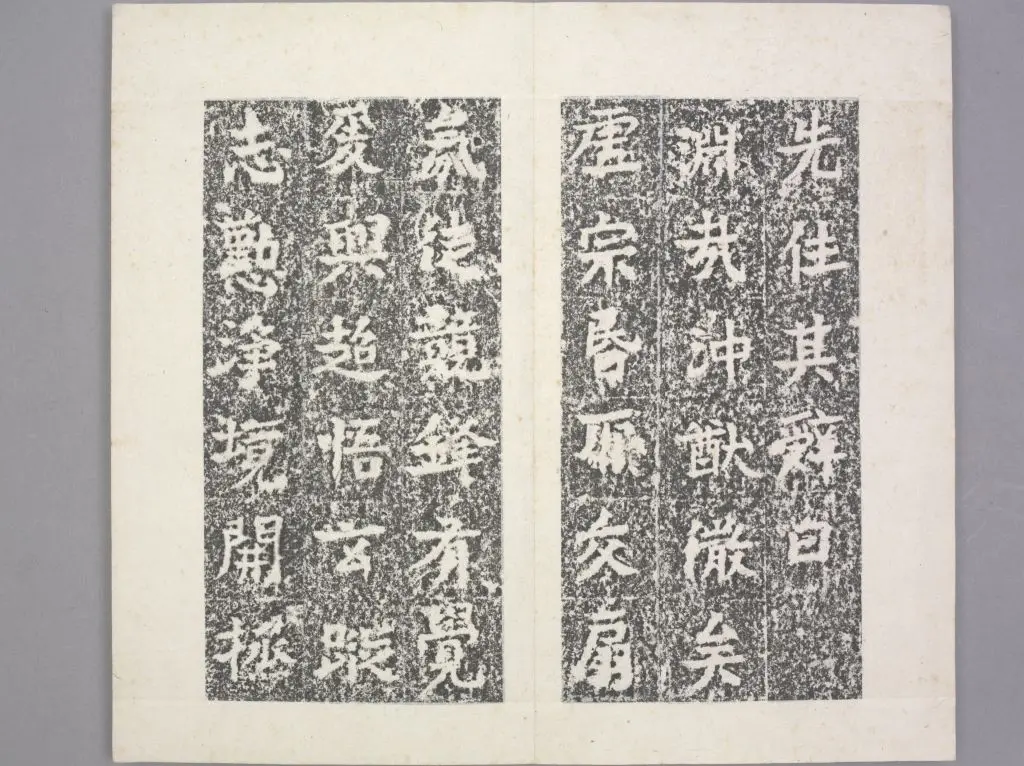 先住其辭曰
淵哉沖猷微矣
虛宗昏交扇
氛徒競鋒有覺
爰興超悟玄蹤
志懃淨境開極